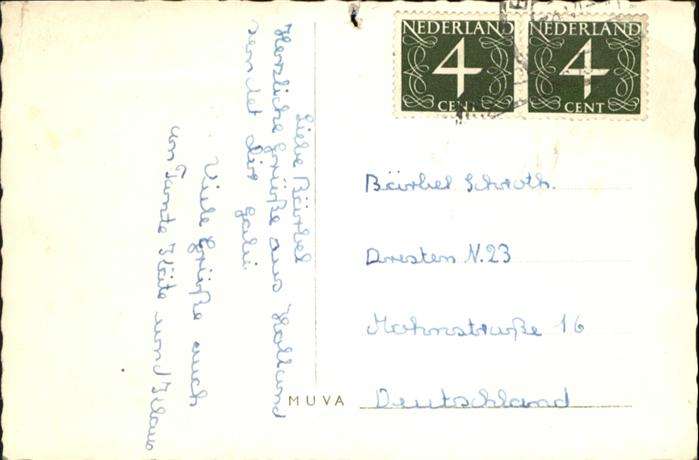 NEDERLAND NEDERLAND
4 4
CENT CENT
Liebe Bärbel
Herzliche Grüße aus Holland
sendet dir Gabi
Viele Grüße auch
von Tante Käte und Klaus
Bärbel Schroth.
Dresten N.23
Mohnstraße 16
Deutschland
MUVA